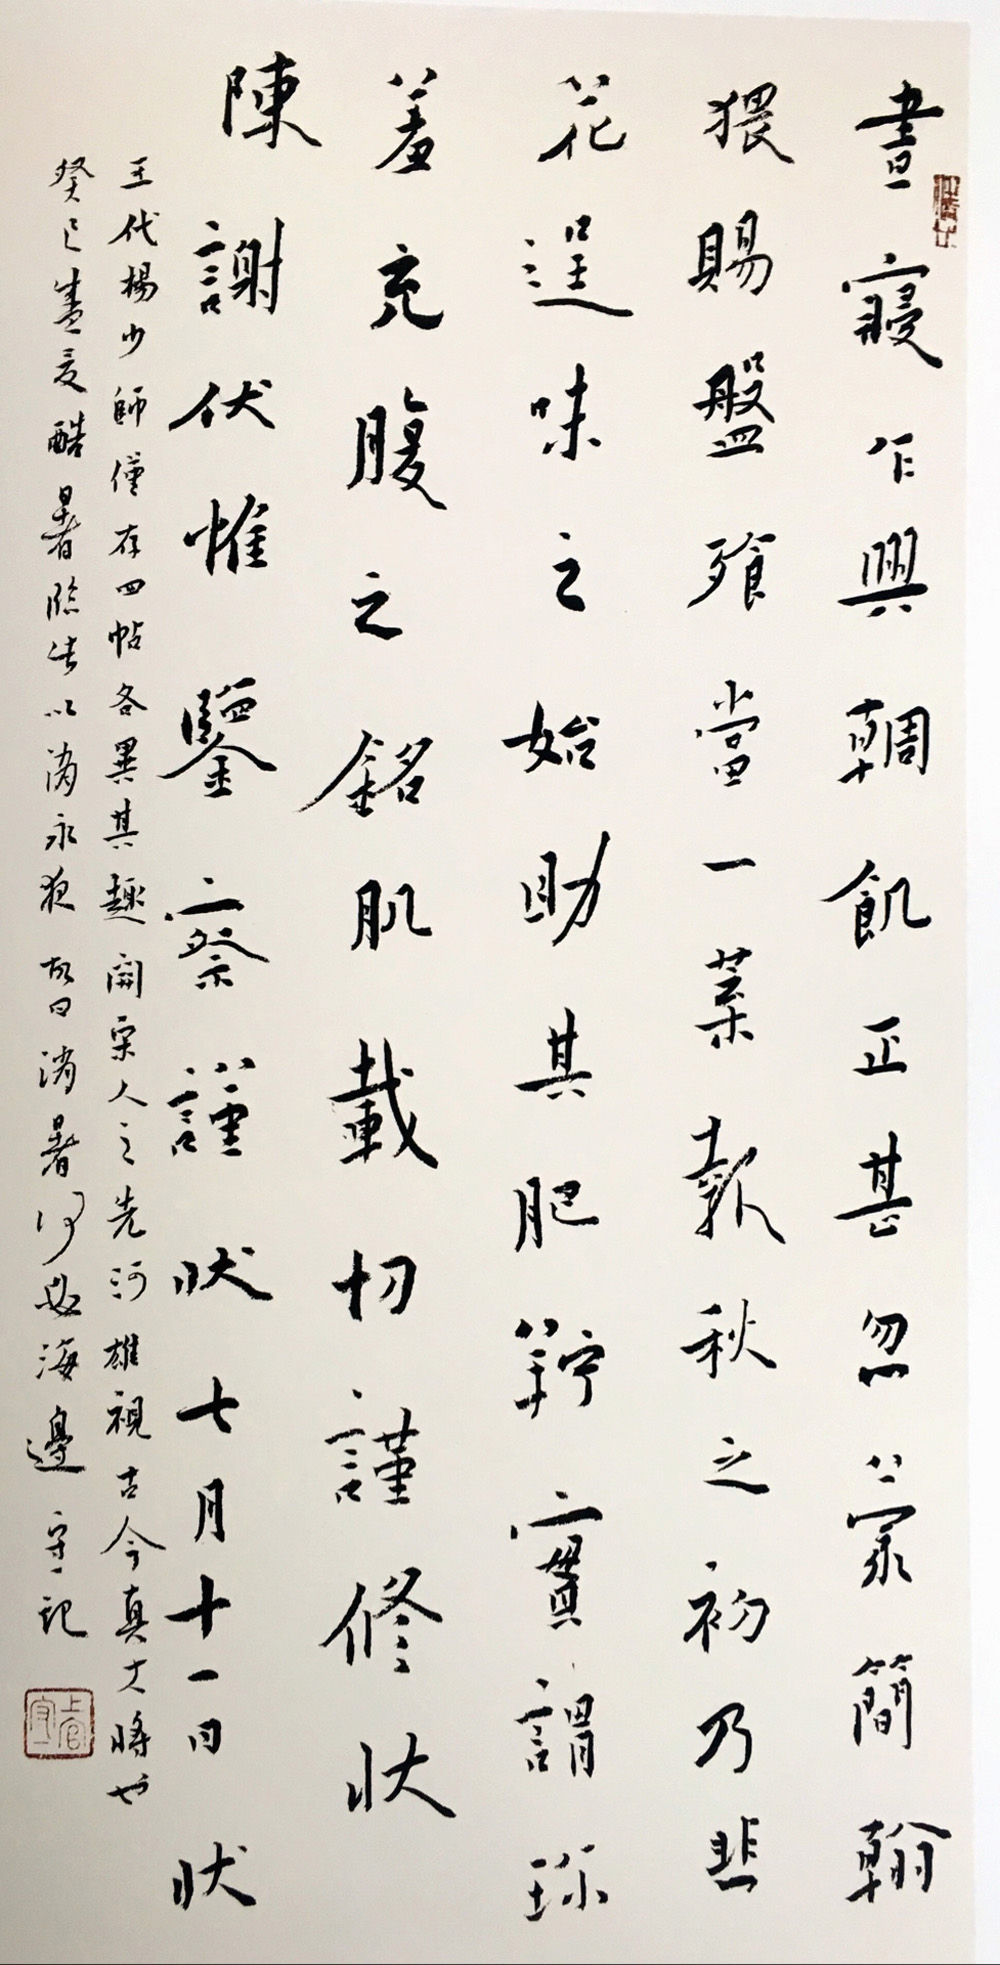 晝寢乍興朝飢正甚忽蒙簡翰
猥賜盤飧當一葉報秋之初乃韭
花逞味之始助其肥羜實謂珎
羞充腹之銘肌載切謹修狀
陳謝伏惟鑒察謹狀七月十一日狀
五代楊少師僅存四帖各異其趣開宋人之先河雄視古今真大將也
癸巳盛夏酷暑臨此以消永夜故曰消暑何必海邊守一記
上官守一